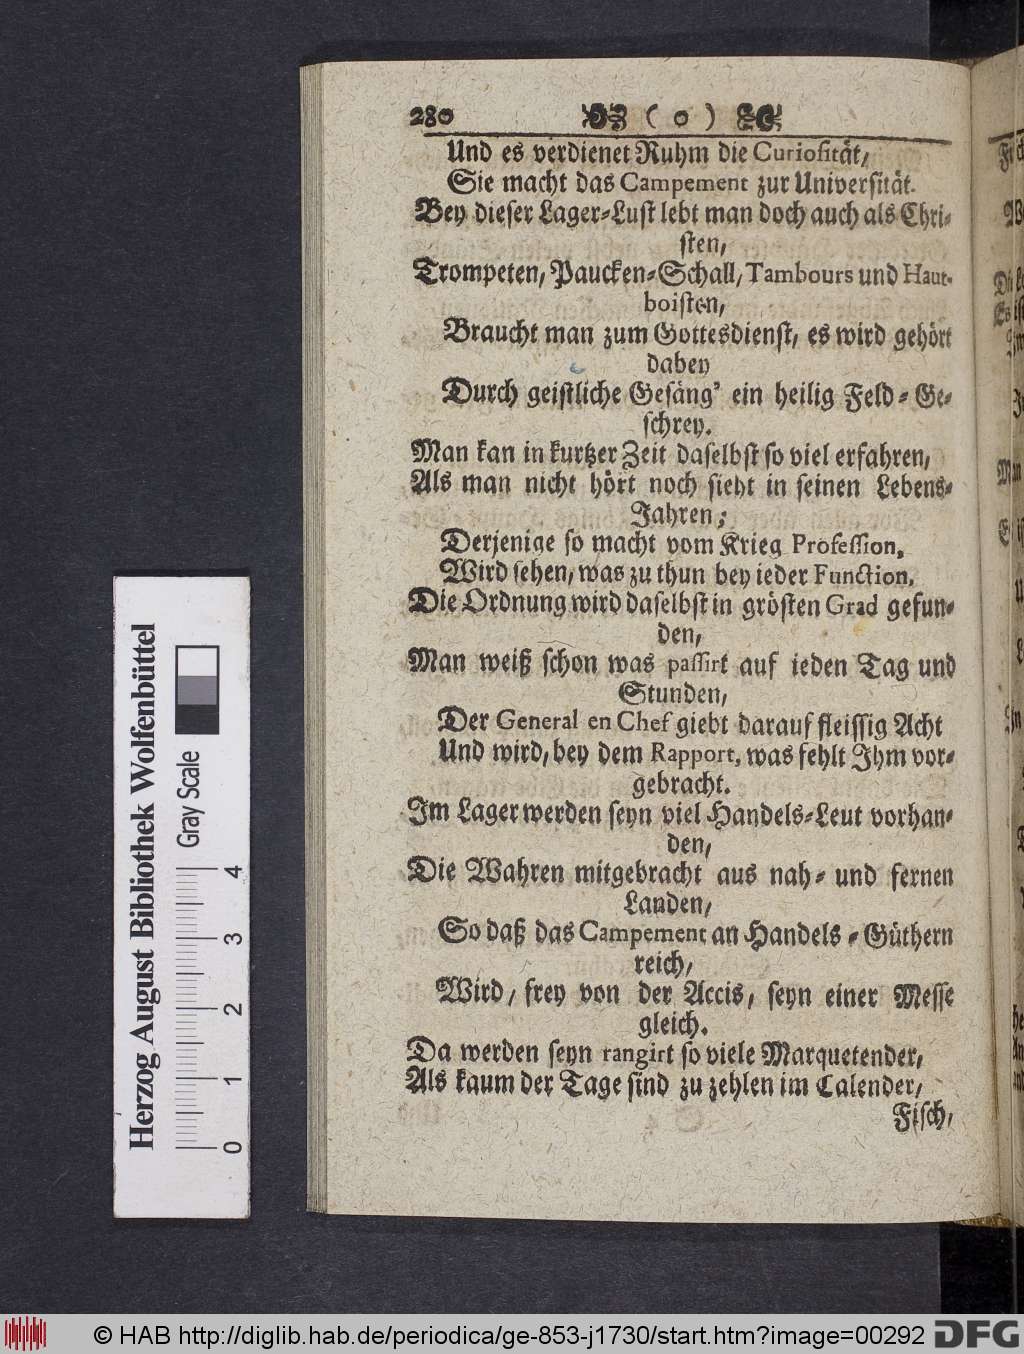 280 ( 0 )
Und es verdienet Ruhm die Curiosität,
Sie macht das Campement zur Universität.
Bey dieser Lager-Lust lebt man doch auch als Chri-
sten,
Trompeten, Paucken-Schall, Tambours und Haut-
boisten,
Braucht man zum Gottesdienst, es wird gehört
dabey
Durch geistliche Gesäng' ein heilig Feld-Ge-
schrey.
Man kan in kurtzer Zeit daselbst so viel erfahren,
Als man nicht hört noch sieht in seinen Lebens-
Jahren;
Derjenige so macht vom Krieg Profession,
Wird sehen, was zu thun bey ieder Function,
Die Ordnung wird daselbst in grösten Grad gefun-
den,
Man weiß schon was passirt auf ieden Tag und
Stunden,
Der General en Chef giebt darauf fleissig Acht
Und wird, bey dem Rapport, was fehlt Ihm vor-
gebracht.
Im Lager werden seyn viel Handels-Leut vorhan-
den,
Die Wahren mitgebracht aus nah- und fernen
Landen,
So daß das Campement an Handels-Güthern
reich,
Wird, frey von der Accis, seyn einer Messe
gleich.
Da werden seyn rangirt so viele Marquetender,
Als kaum der Tage sind zu zehlen im Calender,
Fisch,
Herzog August Bibliothek Wolfenbüttel
Gray Scale
0 1 2 3 4
© HAB http://diglib.hab.de/periodica/ge-853-j1730/start.htm?image=00292 DFG